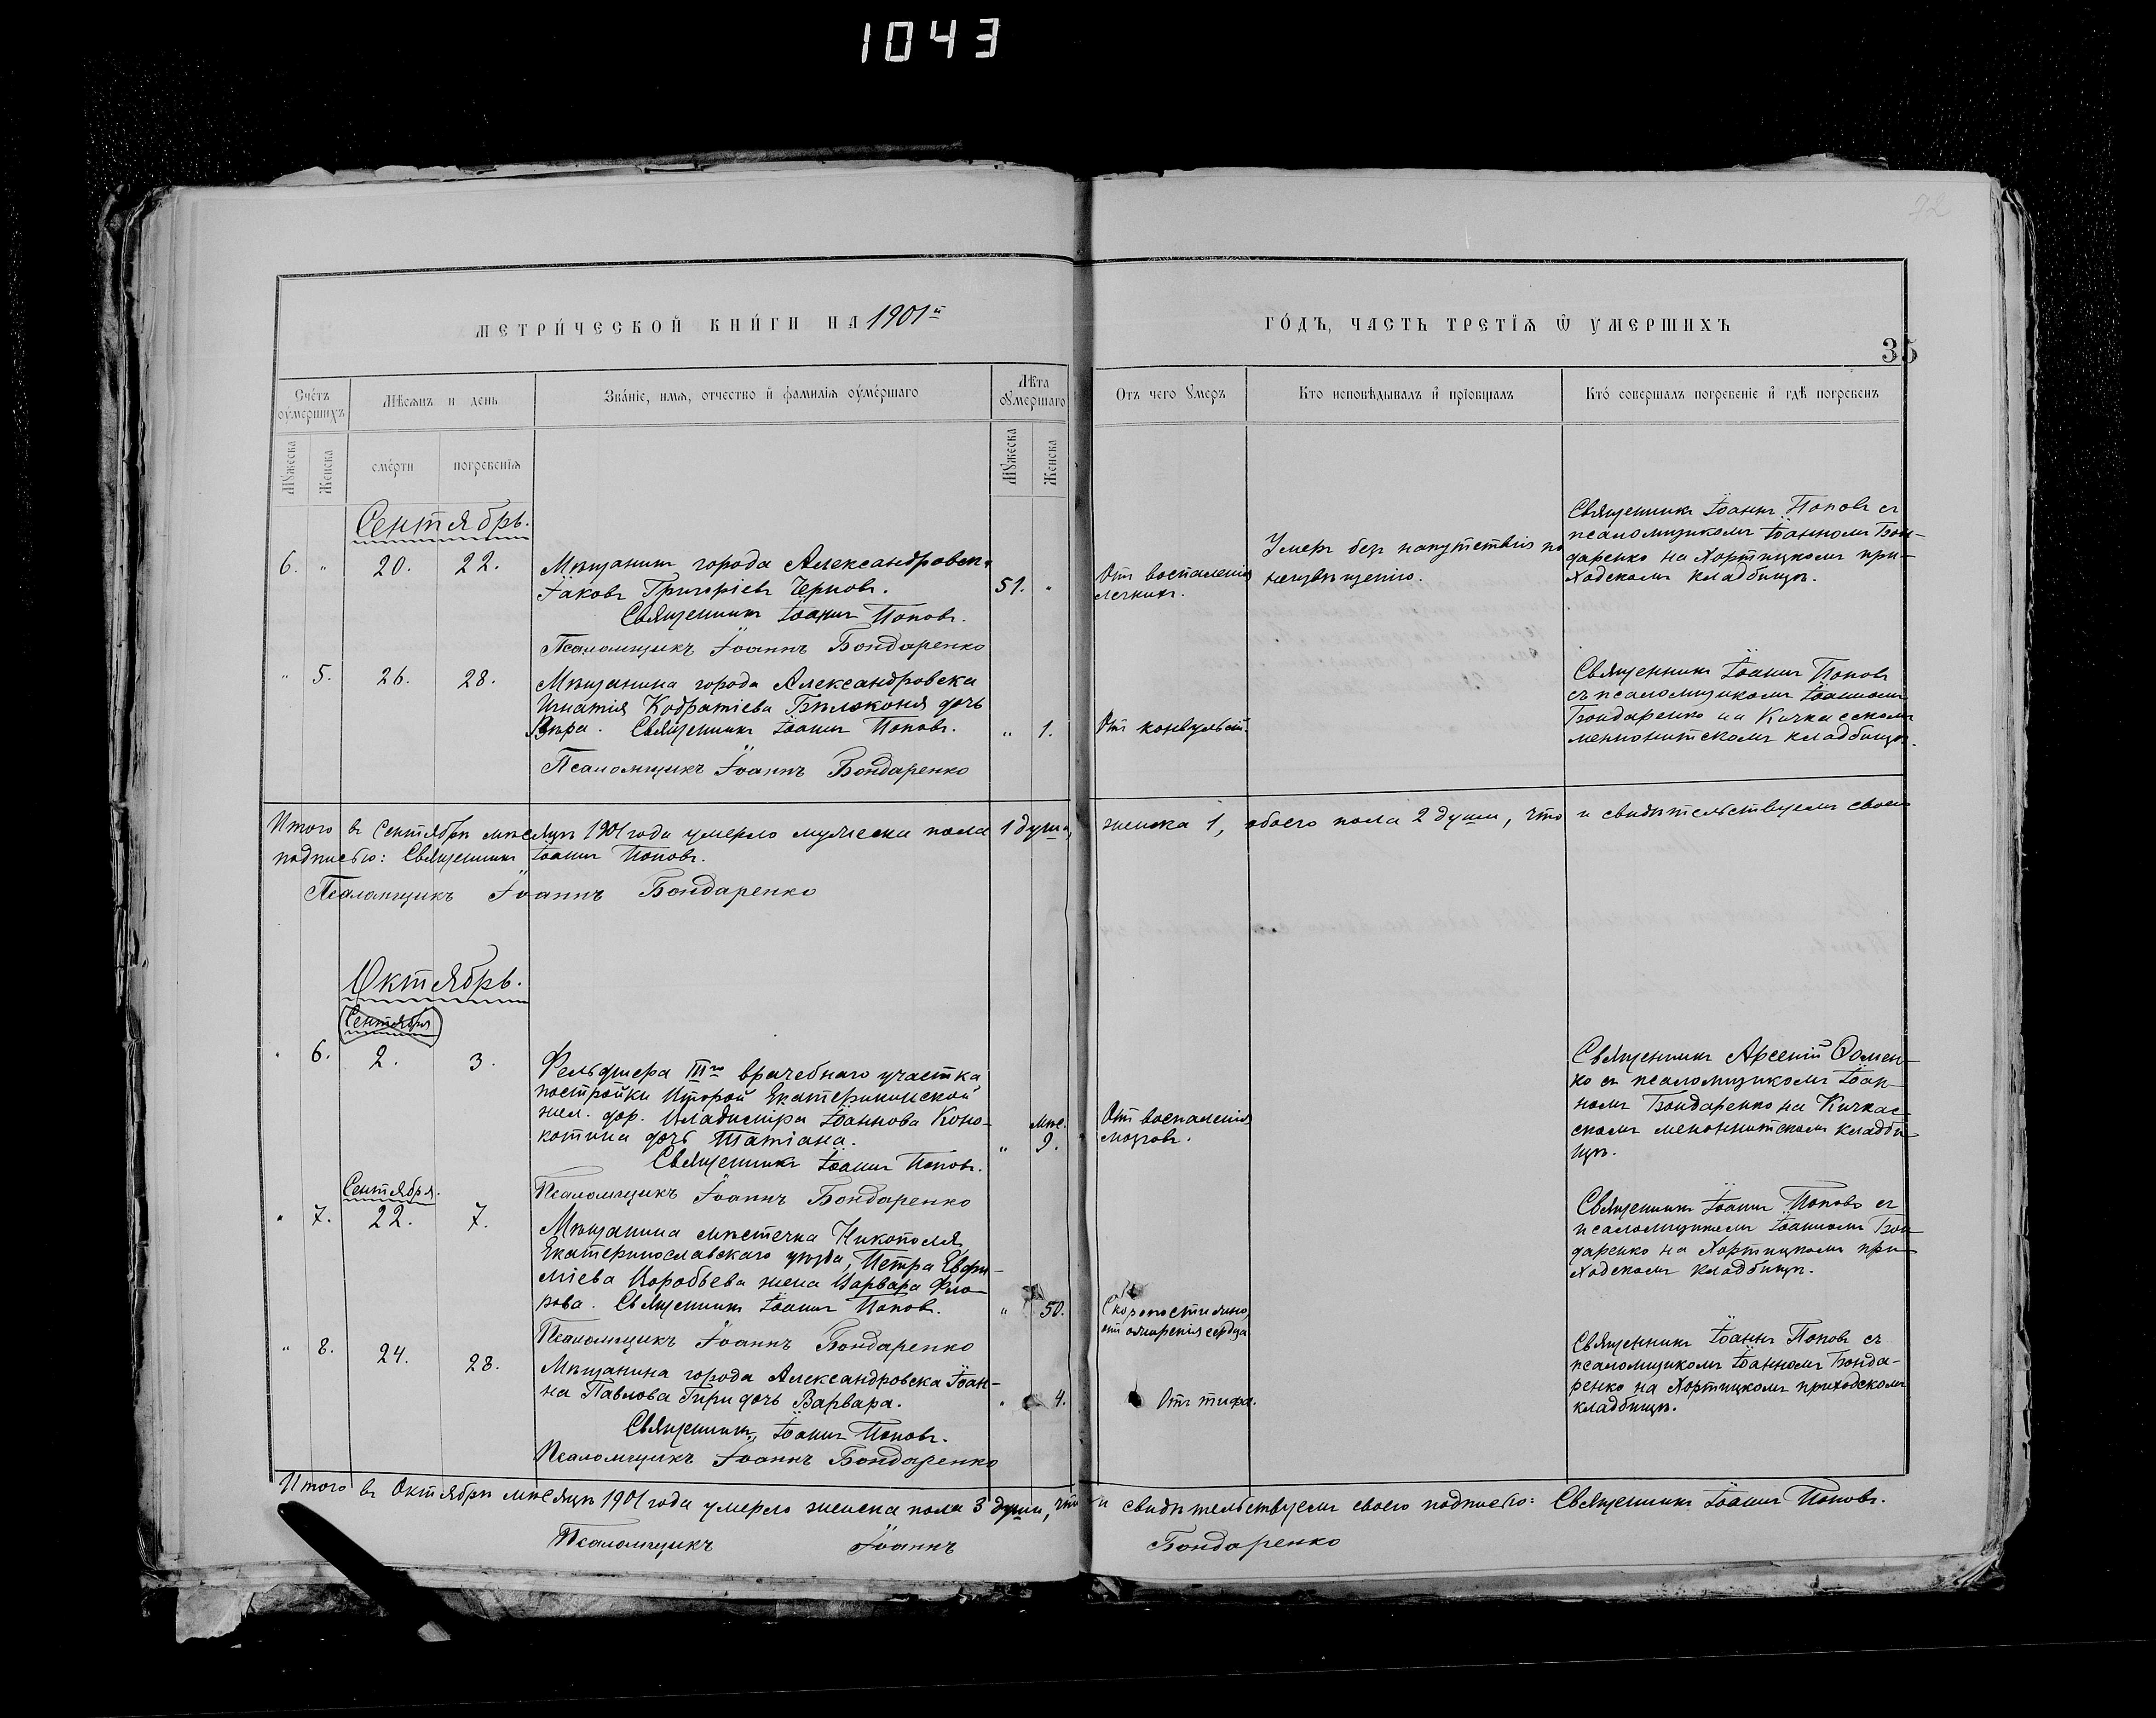 1043
92
МЕТРИ́ЧЕСКОЙ КНИ́ГИ НА 1901й
ГО́ДЪ, ЧАСТЬ ТРЕТІѦ Ѿ УМЕРШИХЪ
35
Сче́тъ оумершихъ
Мѣсяцъ и день
Зва́ніе, имя, отчество и фамилія оуме́ршаго
Лѣта Оумершаго
Отъ чего Умеръ
Кто исповѣдывалъ и пріобщалъ
Кто́ совершалъ погребеніе и гдѣ погребенъ
Мужеска
Женска
сме́рти
погребенія
Мужеска
Женска
Сентябрь.
6. " 20. 22.
Мѣщанинъ города Александровска
Іаковъ Григоріевъ Черновъ.
51. "
Священникъ Іоаннъ Поповъ.
Псаломщикъ Іоаннъ Бондаренко
Отъ воспаленія
легкихъ.
Умеръ безъ напутствія по
неизвѣщенію.
Священникъ Іоаннъ Поповъ съ
псаломщикомъ Іоанномъ Бон-
даренко на Хортицкомъ при-
ходскомъ кладбищѣ.
" 5. 26. 28.
Мѣщанина города Александровска
Игнатія Кодратіева Бѣлоконя дочь
Вѣра. Священникъ Іоаннъ Поповъ.
" 1.
Псаломщикъ Іоаннъ Бондаренко
Отъ конвульсій.
Священникъ Іоаннъ Поповъ
съ псаломщикомъ Іоанномъ
Бондаренко на Кичкасскомъ
менонитскомъ кладбищѣ.
Итого въ Сентябрѣ мѣсяцѣ 1901 года умерло мужеска пола 1 душа, женска 1, обоего пола 2 души, что и свидѣтельствуемъ своею
подписью: Священникъ Іоаннъ Поповъ.
Псаломщикъ Іоаннъ Бондаренко
Октябрь.
Сентября
" 6. 2. 3.
Фельдшера IIIго врачебнаго участка
постройки Второй Екатерининской
жел. дор. Владиміра Іоаннова Коно-
котина дочь Татіана.
" мѣс. 9.
Священникъ Іоаннъ Поповъ.
Псаломщикъ Іоаннъ Бондаренко
Отъ воспаленія
мозговъ.
Священникъ Арсеній Ѳомен-
ко съ псаломщикомъ Іоан-
номъ Бондаренко на Кичкас-
скомъ менонитскомъ кладби-
щѣ.
Сентября.
" 7. 22. 7.
Мѣщанина мѣстечка Никополя
Екатеринославскаго уѣзда, Петра Евфи-
міева Воробьева жена Варвара Фло-
рова. Священникъ Іоаннъ Поповъ.
" 50.
Псаломщикъ Іоаннъ Бондаренко
Скоропостижно,
отъ ожирѣнія сердца
Священникъ Іоаннъ Поповъ съ
псаломщикомъ Іоанномъ Бон-
даренко на Хортицкомъ при-
ходскомъ кладбищѣ.
" 8. 24. 28.
Мѣщанина города Александровска Іоан-
на Павлова Гири дочь Варвара.
" 4.
Священникъ Іоаннъ Поповъ.
Псаломщикъ Іоаннъ Бондаренко
Отъ тифа.
Священникъ Іоаннъ Поповъ съ
псаломщикомъ Іоанномъ Бонда-
ренко на Хортицкомъ приходскомъ
кладбищѣ.
Итого въ Октябрѣ мѣсяцѣ 1901 года умерло женска пола 3 души, что и свидѣтельствуемъ своею подписью: Священникъ Іоаннъ Поповъ.
Псаломщикъ Іоаннъ Бондаренко